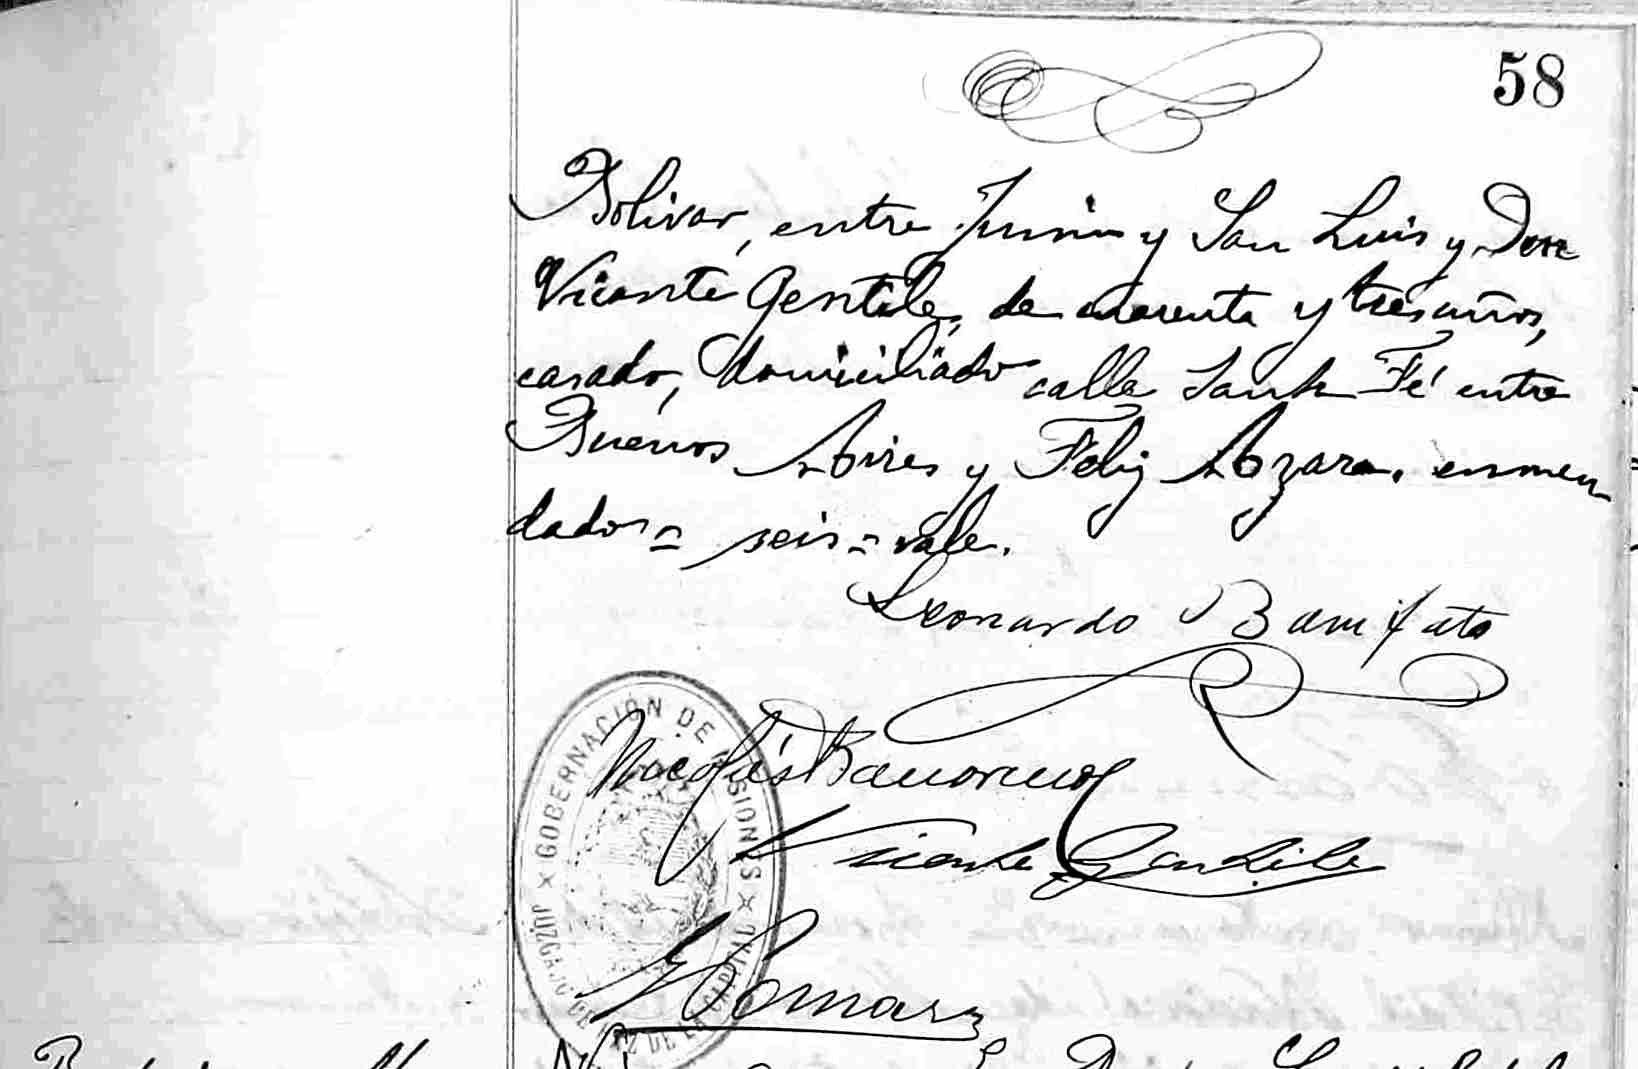 58
Bolivar, entre Junin y San Luis y Don
Vicente Gentile, de cuarenta y tres años,
casado, domiciliado calle Santa Fé entre
Buenos Aires y Feliz Azara. enmen
dado = seis = vale.
Leonardo Bamifato
Nicolás
Vicente Gentile
GOBERNACIÓN DE MISIONES
JUZGADO DE PAZ DE LA CAPITAL